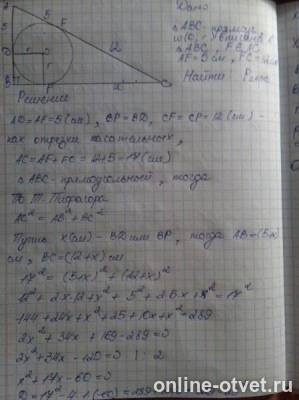 Дано
△ABC - прямоу.
△ABC, F ∈ AC
AF = 5 см, FC = 12 см
Найти
Решение
AD = AF = 5 (см), BP = BD, CF = CP = 12 (см) -
как отрезки касательных,
AC = AF + FC = 12 + 5 = 17 (см)
△ABC - прямоугольный, тогда
по т. Пифагора
AC² = AB² + BC²
Пусть x (см) - BD или BP, тогда AB = (5+x)
см, BC = (12+x) см
17² = (5+x)² + (12+x)²
12² + 2x·12 + x² + 5² + 2·5x + x² = 17²
144 + 24x + x² + 25 + 10x + x² = 289
2x² + 34x + 169 - 289 = 0
2x² + 34x - 120 = 0 | : 2
x² + 17x - 60 = 0
online-otvet.ru